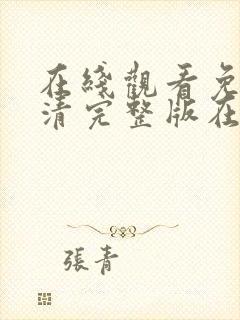 在綫觀看免
清完整版在
張青